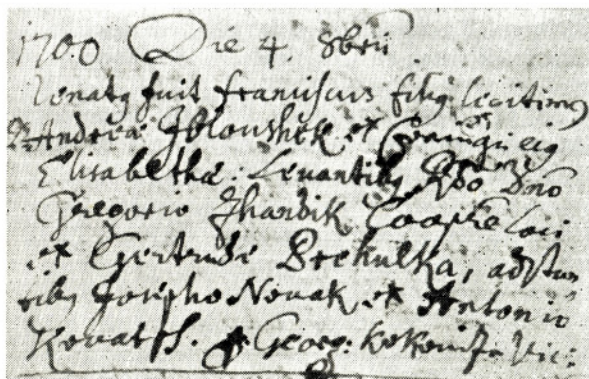 1700 Die 4. 8bris
renatq fuit franciscus filiq legitimq
Andreæ Jeloushek et Coniugis eiq
Elisabethæ: Levantibq Rdo Dno
Gregorio Zhardik Coop
et Gertrude Prekulka, adstan
tibq Josepho Novak et Antonio
Kovatsh. Georg: Vic: